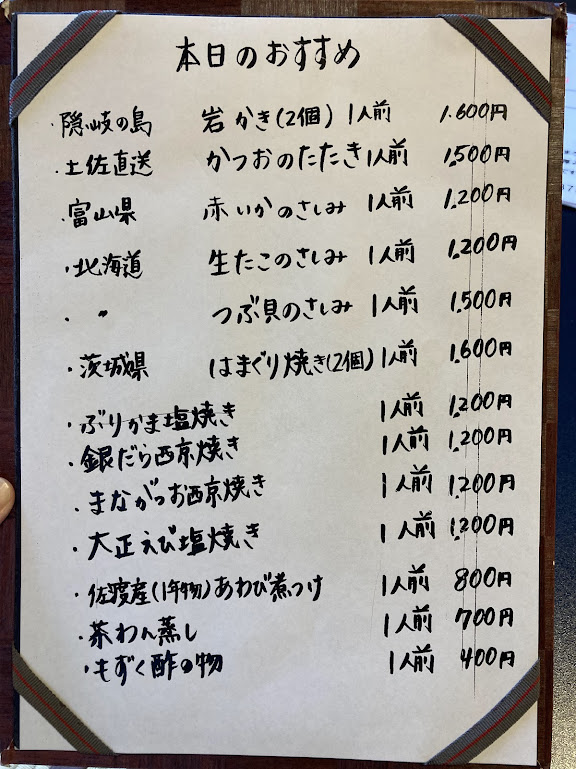 本日のおすすめ
・隠岐の島 岩かき(2個) 1人前 1.600円
・土佐直送 かつおのたたき 1人前 1,500円
・富山県 赤いかのさしみ 1人前 1,200円
・北海道 生たこのさしみ 1人前 1,200円
・ 〃 つぶ貝のさしみ 1人前 1,500円
・茨城県 はまぐり焼き(2個) 1人前 1,600円
・ぶりかま塩焼き 1人前 1,200円
・銀だら西京焼き 1人前 1,200円
・まながつお西京焼き 1人前 1,200円
・大正えび塩焼き 1人前 1,200円
・佐渡産(1年物)あわび煮つけ 1人前 800円
・茶わん蒸し 1人前 700円
・もずく酢の物 1人前 400円